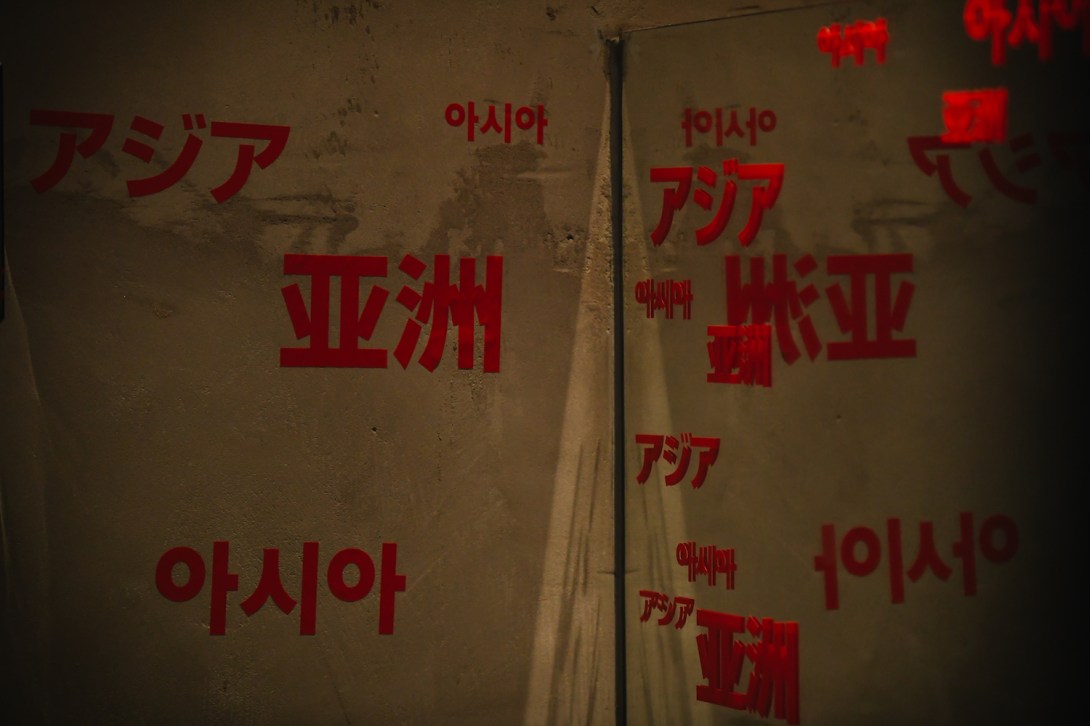 아시아
아시아
亚洲
アジア
아시아
아시아
アジア
亚洲
아시아
亚洲
亚洲
アジア
아시아
아시아
아시아
アジア
亚洲